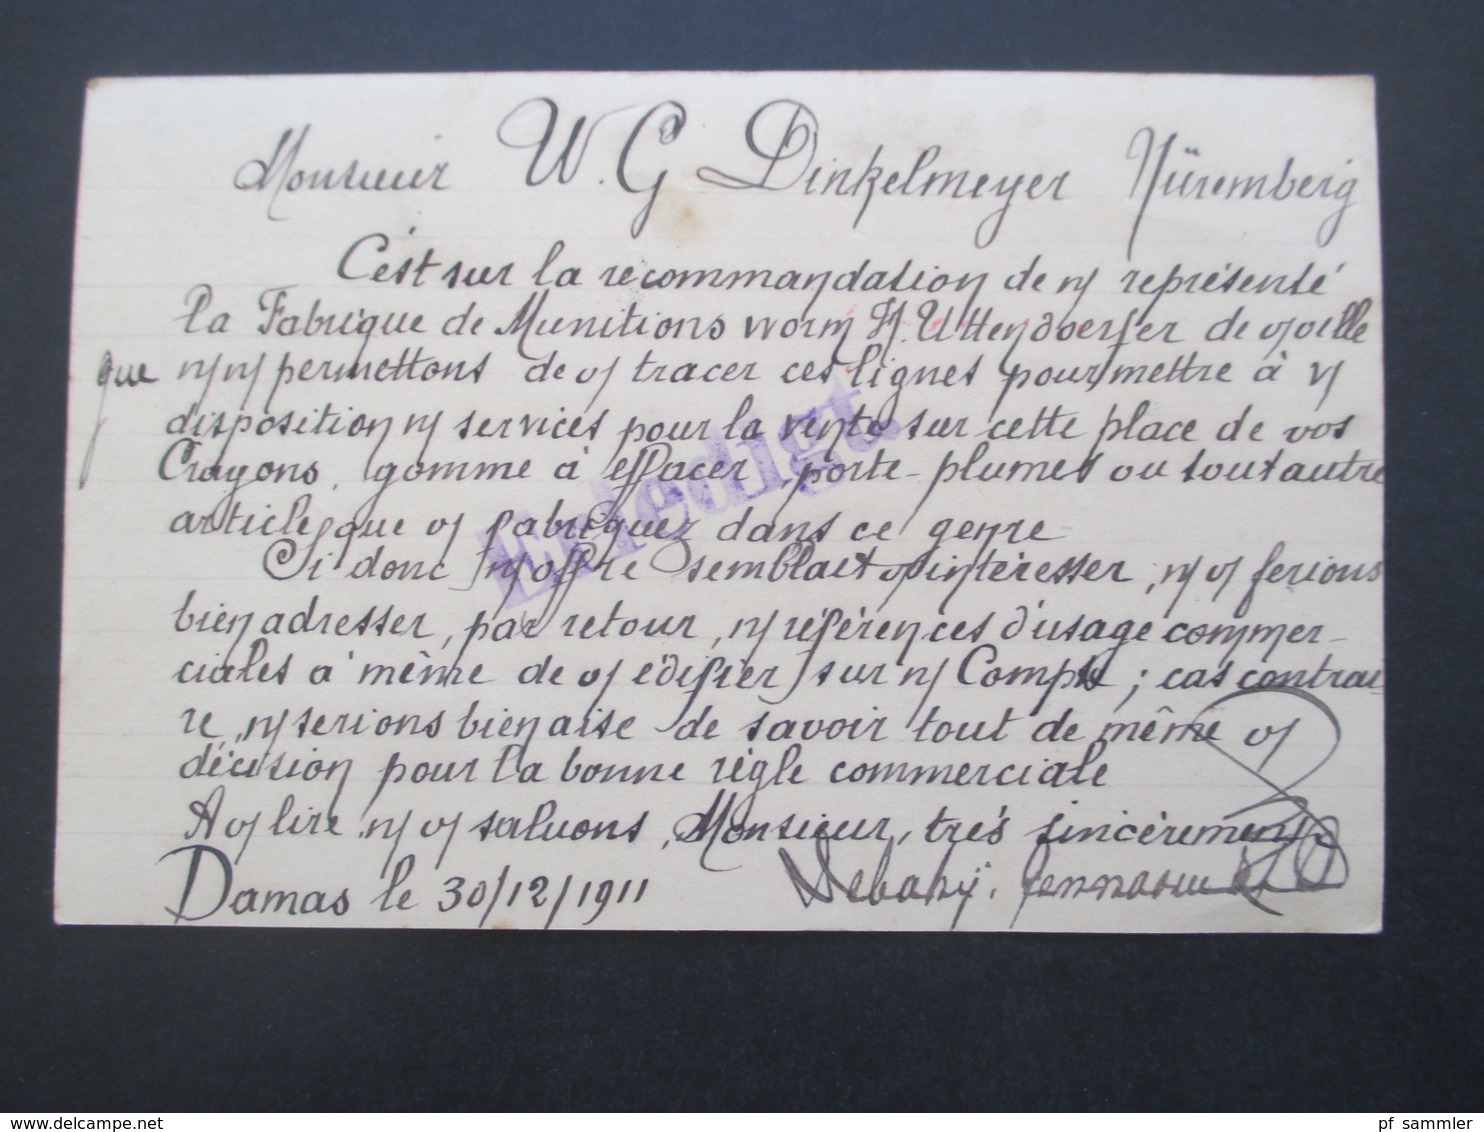 Monsieur W. G Dinkelmeyer Nüremberg
C'est sur la recommandation de n/ représenté
la Fabrique de Munitions vorm H. Uttendoerfer de v/ville
que n/ n/ permettons de v/ tracer ces lignes pour mettre à v/
disposition n/ services pour la vente sur cette place de vos
Crayons, gomme à effacer, porte-plumes ou tout autre
article que v/ fabriquez dans ce genre
Erledigt
Si donc n/ offre semblait v/ intéresser, n/ v/ ferions
bien adresser, par retour, n/ références d'usage commer-
ciales à même de v/ édifier sur n/ Compte; cas contrai-
re, n/ serions bien aise de savoir tout de même v/
décision pour la bonne règle commerciale
A v/ lire, n/ v/ saluons, Monsieur, très sincèrement
Damas le 30/12/1911
delcampe.net
pf_sammler